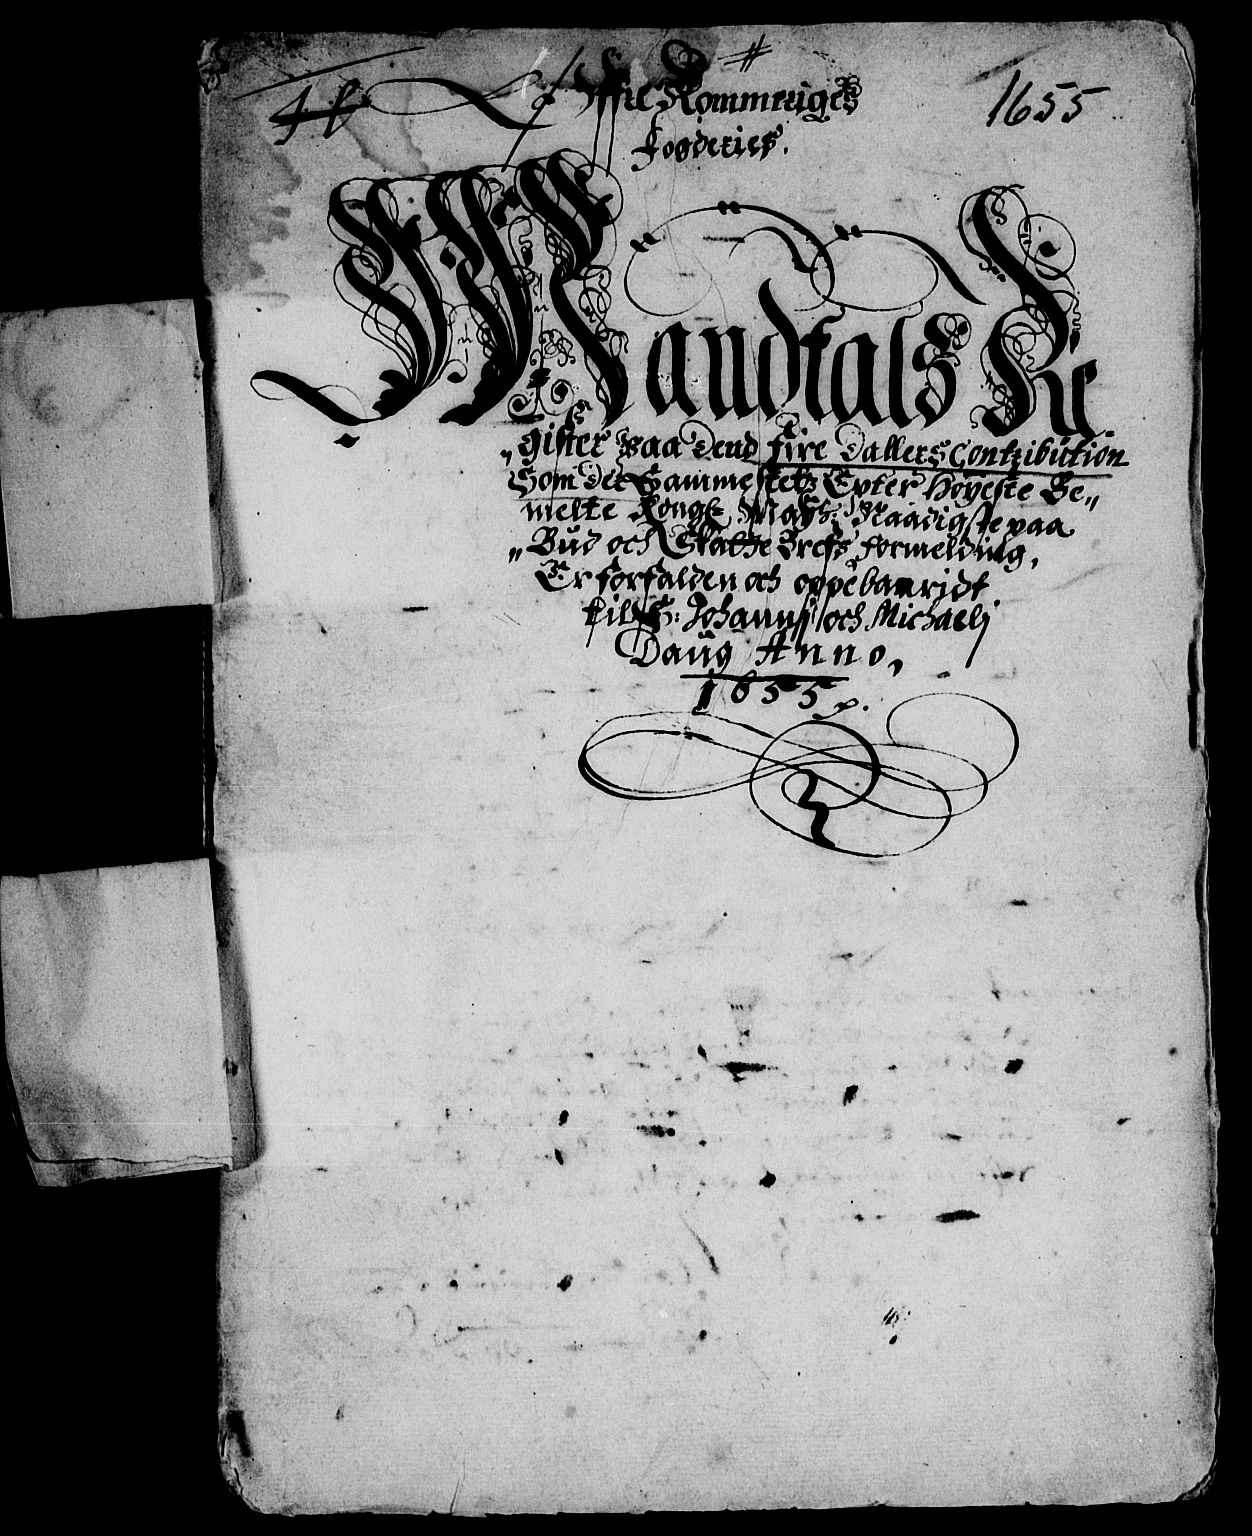 1655
Øffre Rommeriges
Fogderies.
Mandtals Re
„gister paa Dend fire Dallers Contribution
Som det Sammestets Epter Høyeste Be„
melte Kongl: Maÿts: Naadigste paa
„Bud och Skatte Brefs formelding,
Er forfalden och oppebaaridt
till S: Johannis och Michaelj
Daug Anno,
1655